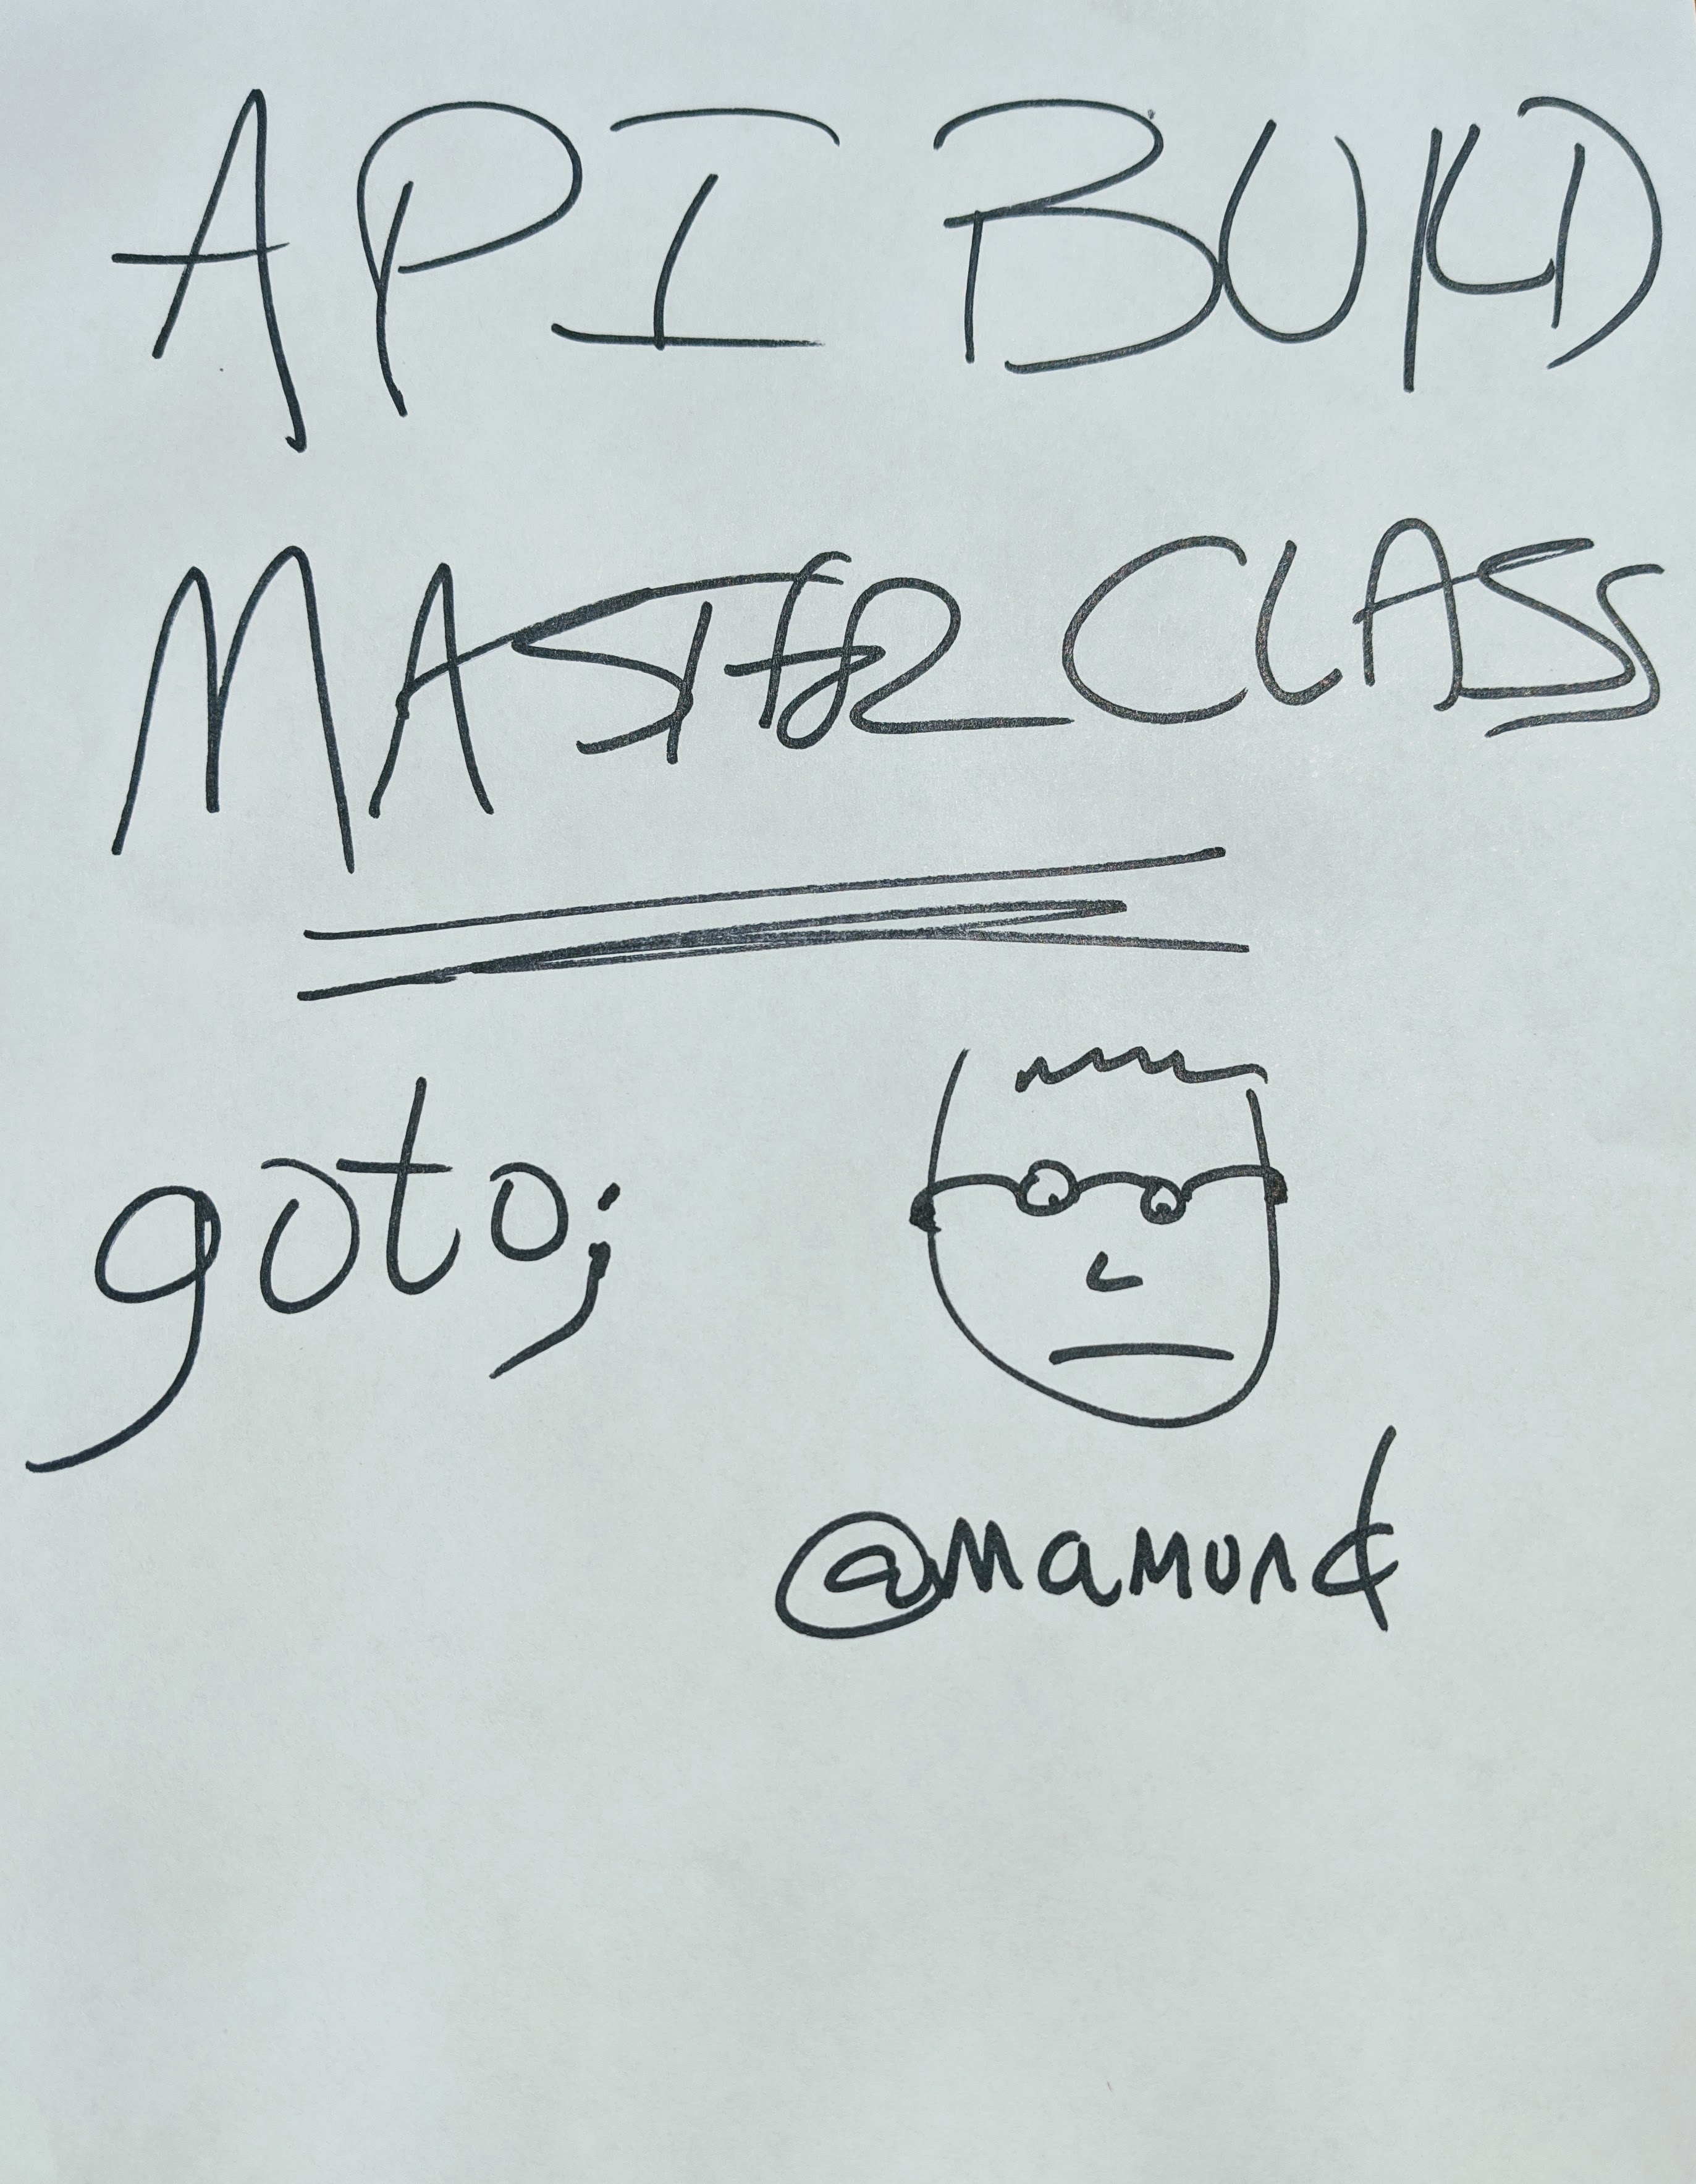 API BUILD
MASTER CLASS
goto;
@mamund